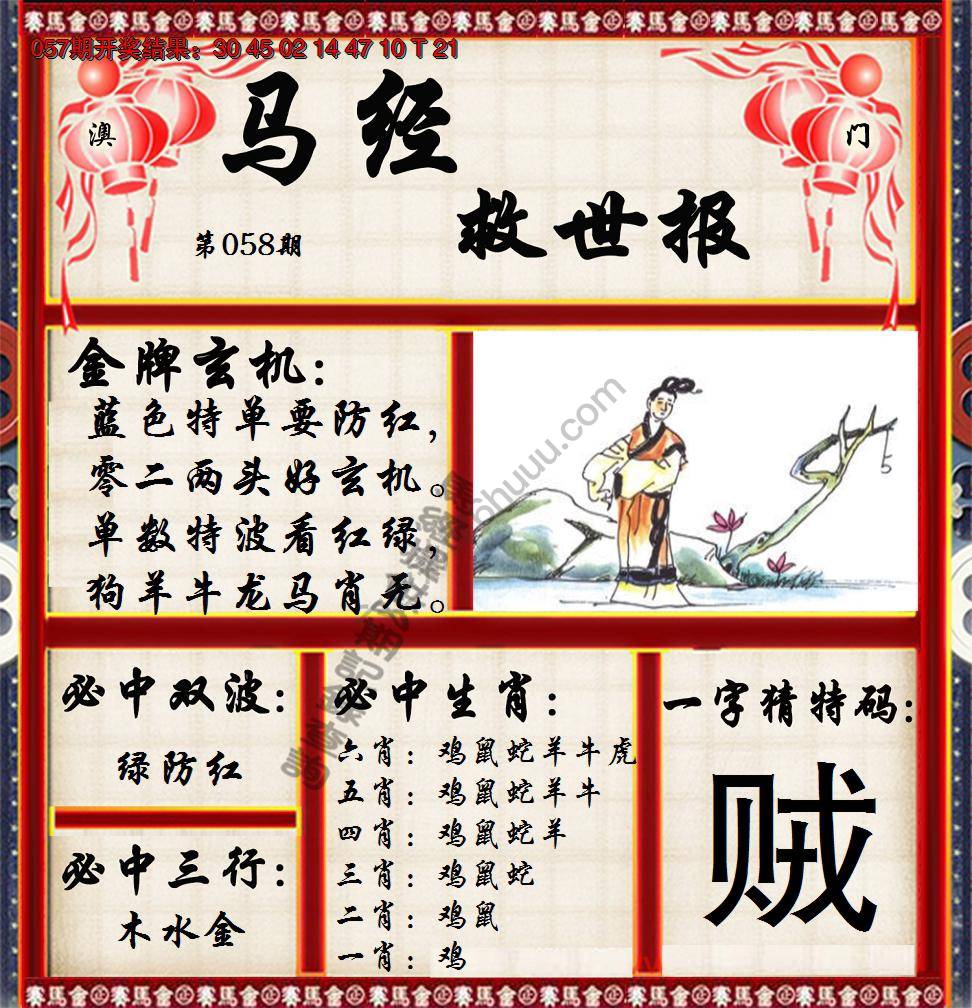 赛馬金會
057期开奖结果：30 45 02 14 47 10 T 21
澳
门
马经
救世报
第058期
金牌玄机：
蓝色特单要防红，
零二两头好玄机。
单数特波看红绿，
狗羊牛龙马肖无。
必中双波：
绿防红
必中三行：
木水金
必中生肖：
六肖：鸡鼠蛇羊牛虎
五肖：鸡鼠蛇羊牛
四肖：鸡鼠蛇羊
三肖：鸡鼠蛇
二肖：鸡鼠
一肖：鸡
一字猜特码：
贼